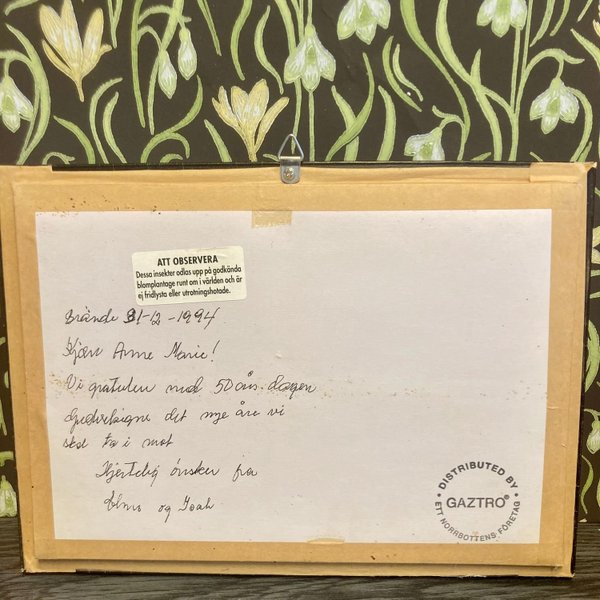 ATT OBSERVERA
Dessa insekter odlas upp på godkända
blomplantage runt om i världen och är
ej fridlysta eller utrotningshotade.
31-12-1994
Kjære Anne Marie!
Vi gratulerer med 50 års dagen
det nye åre vi
skal ta i mot
Hjertelig ønsker fra
og
DISTRIBUTED BY
GAZTRO®
ETT NORRBOTTENS FÖRETAG